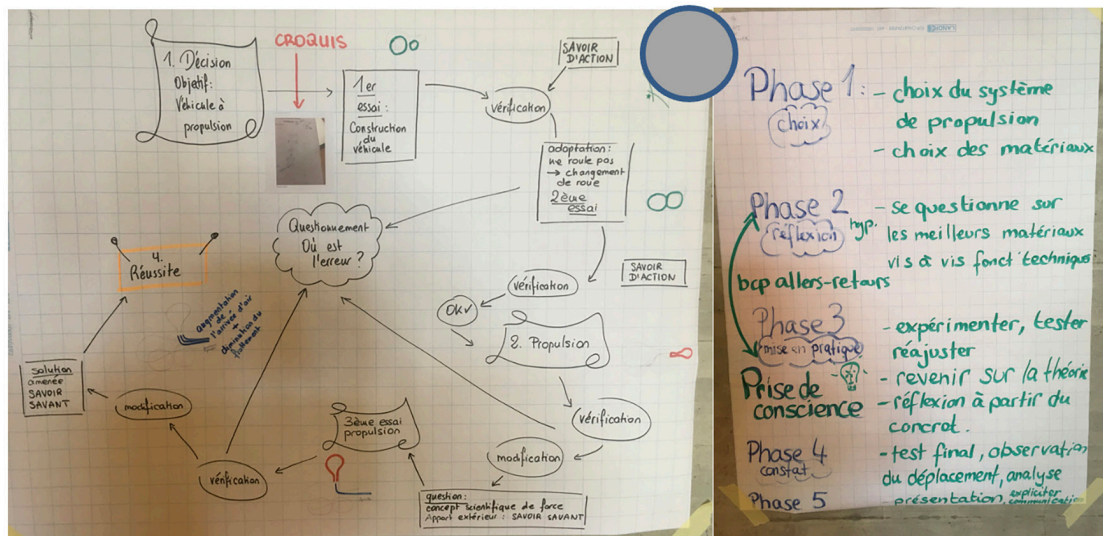 1. Décision
Objetif:
Véhicule à
propulsion
CROQUIS
1er
essai :
Construction
du
véhicule
vérification
SAVOIR
D'ACTION
adaptation:
ne roule pas
→ changement
de roue
2ème
essai
Questionnement
Où est
l'erreur ?
vérification
SAVOIR
D'ACTION
OK√
2. Propulsion
vérification
modification
question:
concept scientifique de force
Apport extérieur : SAVOIR SAVANT
3ème essai
propulsion
vérification
modification
solution
amenée
SAVOIR
SAVANT
4.
Réussite
augmentation
de
l'arrivée d'air
+
diminution du
frottement
Phase 1 :
choix
- choix du système
de propulsion
- choix des matériaux
Phase 2
réflexion
hyp.
- se questionne sur
les meilleurs matériaux
vis à vis fonct technique
bcp allers-retours
Phase 3
mise en pratique
Prise de
conscience
- expérimenter, tester
réajuster
- revenir sur la théorie
- réflexion à partir du
concret.
Phase 4
constat
- test final, observation
du déplacement, analyse
Phase 5
présentation, expliciter
communication